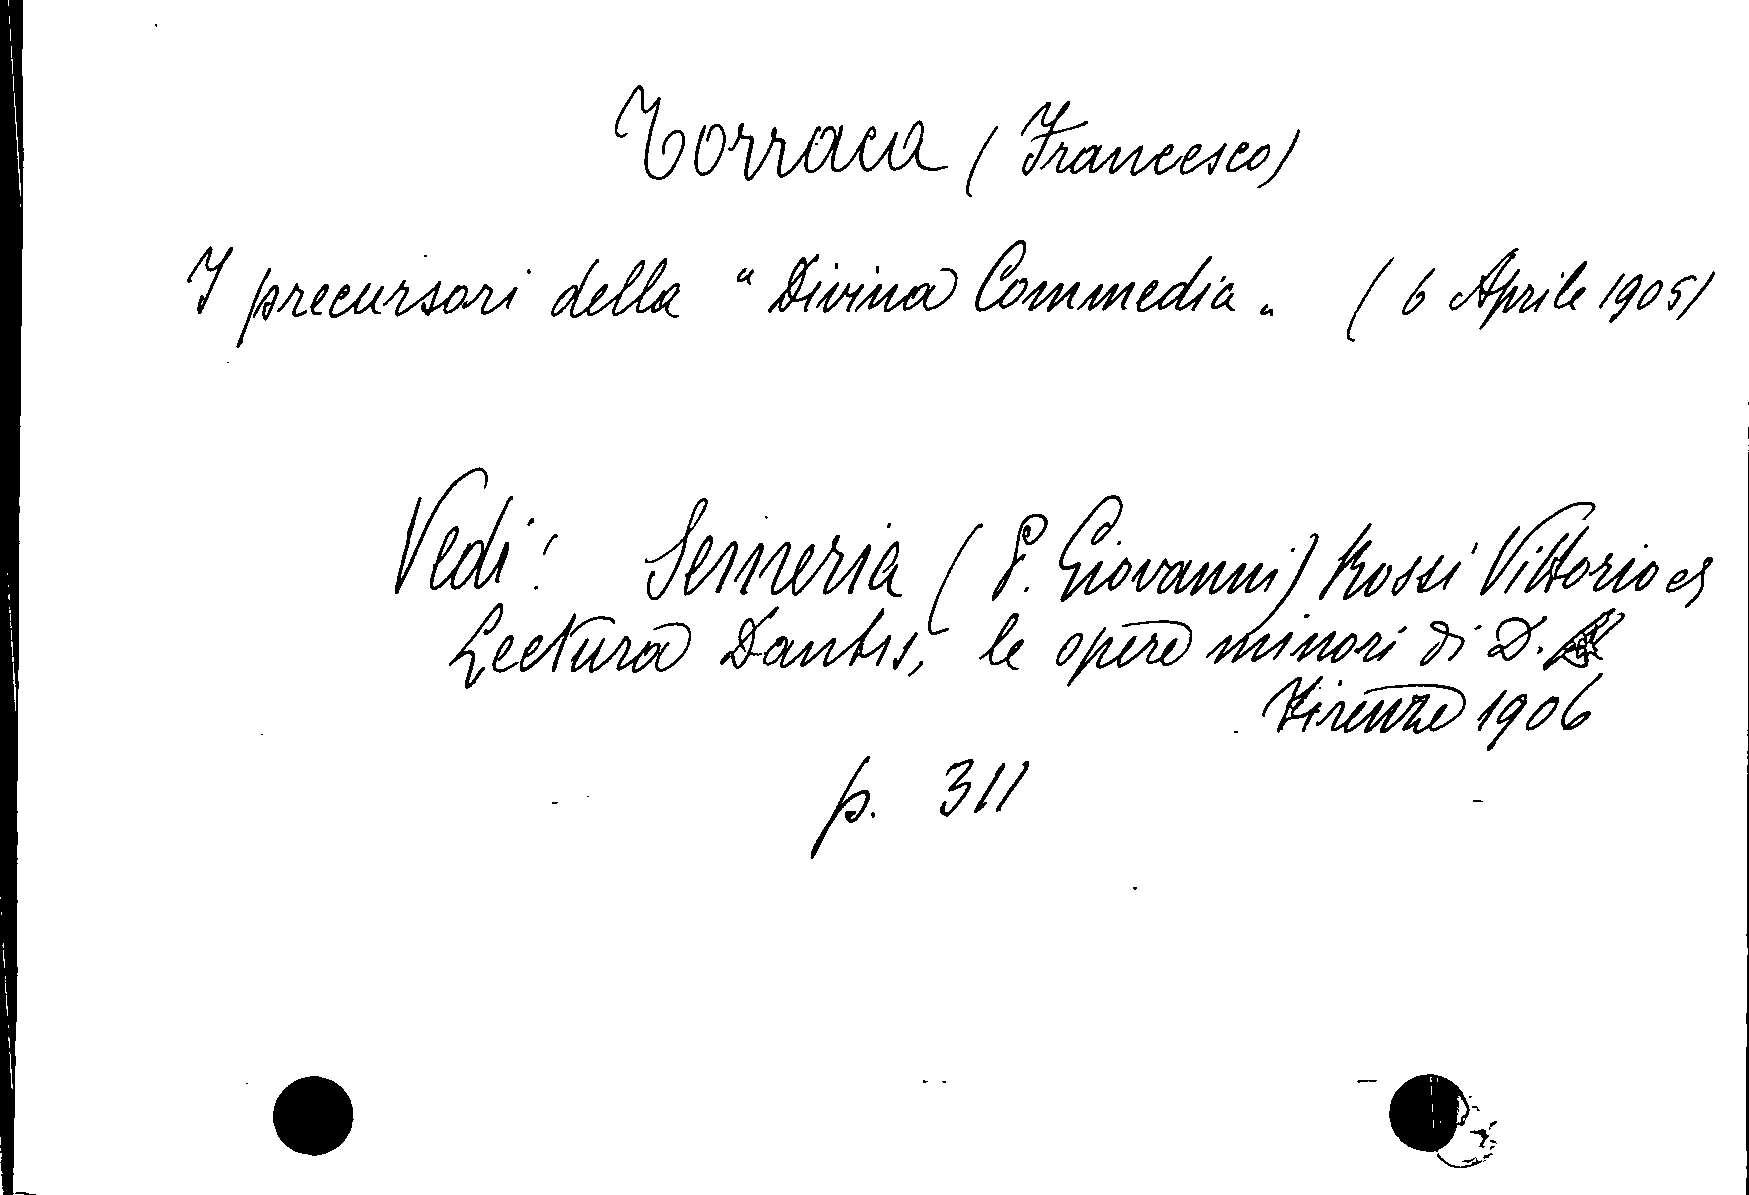 Torraca (Francesco)
I precursori della "Divina Commedia„ (6 Aprile 1905)
Vedi: Semeria (P. Giovanni) Rossi Vittorio ed
Lectura Dantis, le opere minori di D.
Firenze 1906
p. 311